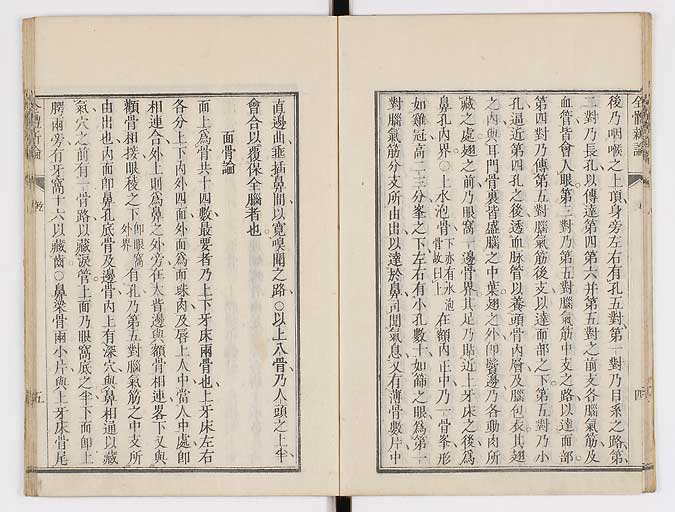 全體新論
後乃咽喉之上頂身旁左右有孔五對第一對乃目系之路第
二對乃長孔以傳達第四第六并第五對之前支各腦氣筋及
血管皆會入眼第三對乃第五對腦氣筋中支之路以達面部
第四對乃傳第五對腦氣筋後支以達面部之下第五對乃小
孔逼近第四孔之後透血脉管以養頭骨內層及腦包衣其翅
之內與耳門骨裏皆盛腦之中葉翅之外卽鬢邊乃各動肉所
藏之處翅之前乃眼窩一邊骨界其足乃貼近上牙床之後爲
鼻孔內界○上水泡骨下亦有水泡骨故曰上在額內正中乃一骨峯形
如雞冠高二三分峯之下左右有小孔數十如篩之眼爲第一
對腦氣筋分支所由出以達於鼻司聞氣息又有薄骨數片中
四
直邊曲垂插鼻間以寬嗅聞之路○以上八骨乃人頭之上半
會合以覆保全腦者也
面骨論
面上爲骨共十四數最要者乃上下牙床兩骨也上牙床左右
各分上下內外四面外面爲面珠肉及唇上人中當人中處卽
相連合外上則爲鼻之外旁在大眥邊與額骨相連畧下又與
顴骨相接眼稜之下卽眼窩外界有孔乃第五對腦氣筋之中支所
由出也內面卽鼻孔底骨及邊骨內上有深穴與鼻相通以藏
氣穴之前有一骨路以藏淚管上面乃眼窩底之半下面卽上
腭兩旁有牙窩十六以藏齒○鼻梁骨兩小片與上牙床骨尾
全體新論
乾
五